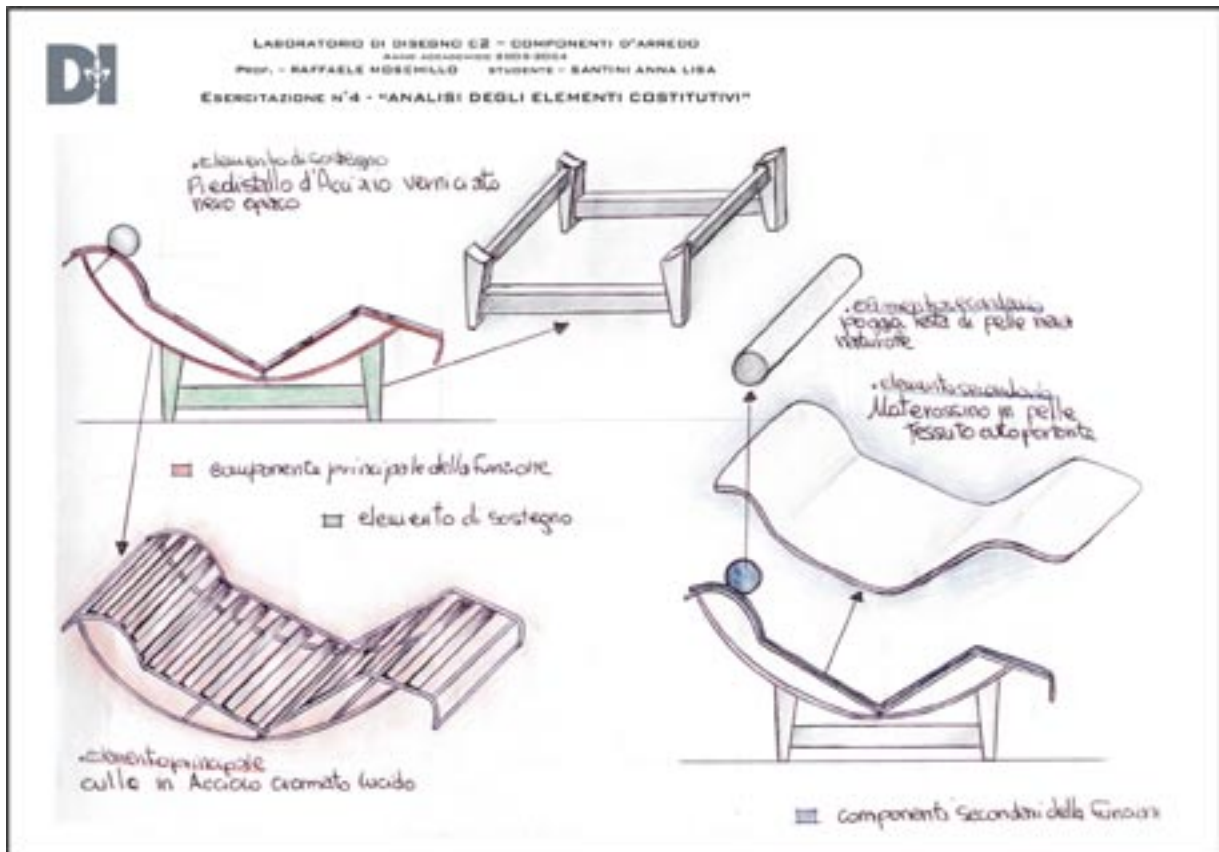 DI
LABORATORIO DI DISEGNO C2 – COMPONENTI D'ARREDO
ANNO ACCADEMICO 2003-2004
PROF. - RAFFAELE MOSCHILLO STUDENTE - SANTINI ANNA LISA
ESERCITAZIONE N°4 - "ANALISI DEGLI ELEMENTI COSTITUTIVI"
•elemento di sostegno
Piedistallo d'Acciaio verniciato
nero opaco
•elemento secondario
poggia testa di pelle nera
naturale
•elemento secondario
Materassino in pelle
Tessuto autoportante
componente principale della funzione
elemento di sostegno
•elemento principale
culla in Acciaio cromato lucido
componenti secondari della funzione